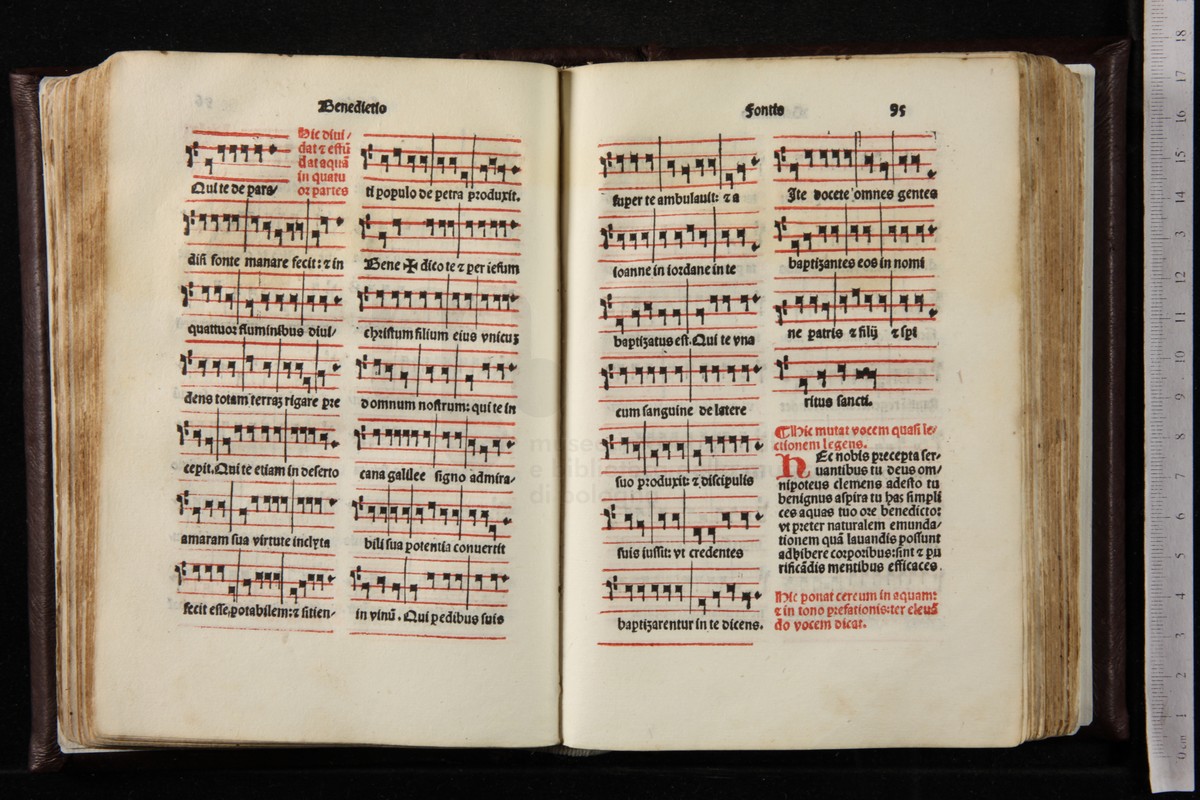 Benedictio
Hic diui/
dat ⁊ effū
dat aquā
in quatu
or partes
Qui te de para/
disi fonte manare fecit: ⁊ in
quattuor fluminibus diui/
dens totam terraz rigare pre
cepit. Qui te etiam in deserto
amaram sua virtute inclyta
fecit esse potabilem: ⁊ sitien-
ti populo de petra produxit.
Bene ✠ dico te ⁊ per iesum
christum filium eius vnicuz
domnum nostrum: qui te in
cana galilee signo admira-
bili sua potentia conuertit
in vinū. Qui pedibus suis
Fontis 95
super te ambulauit: ⁊ a
ioanne in iordane in te
baptizatus est. Qui te vna
cum sanguine de latere
suo produxit: ⁊ discipulis
suis iussit: vt credentes
baptizarentur in te dicens.
Ite docete omnes gentes
baptizantes eos in nomi
ne patris ⁊ filij ⁊ spi
ritus sancti.
¶Hic mutat vocem quasi le/
ctionem legens.
HEc nobis precepta ser-
uantibus tu deus om/
nipotens clemens adesto tu
benignus aspira tu has simpli
ces aquas tuo ore benedicto:
vt preter naturalem emunda/
tionem quā lauandis possunt
adhibere corporibus: sint ⁊ pu
rificādis mentibus efficaces.
Hic ponat cereum in aquam:
⁊ in tono prefationis: ter eleuā
do vocem dicat.